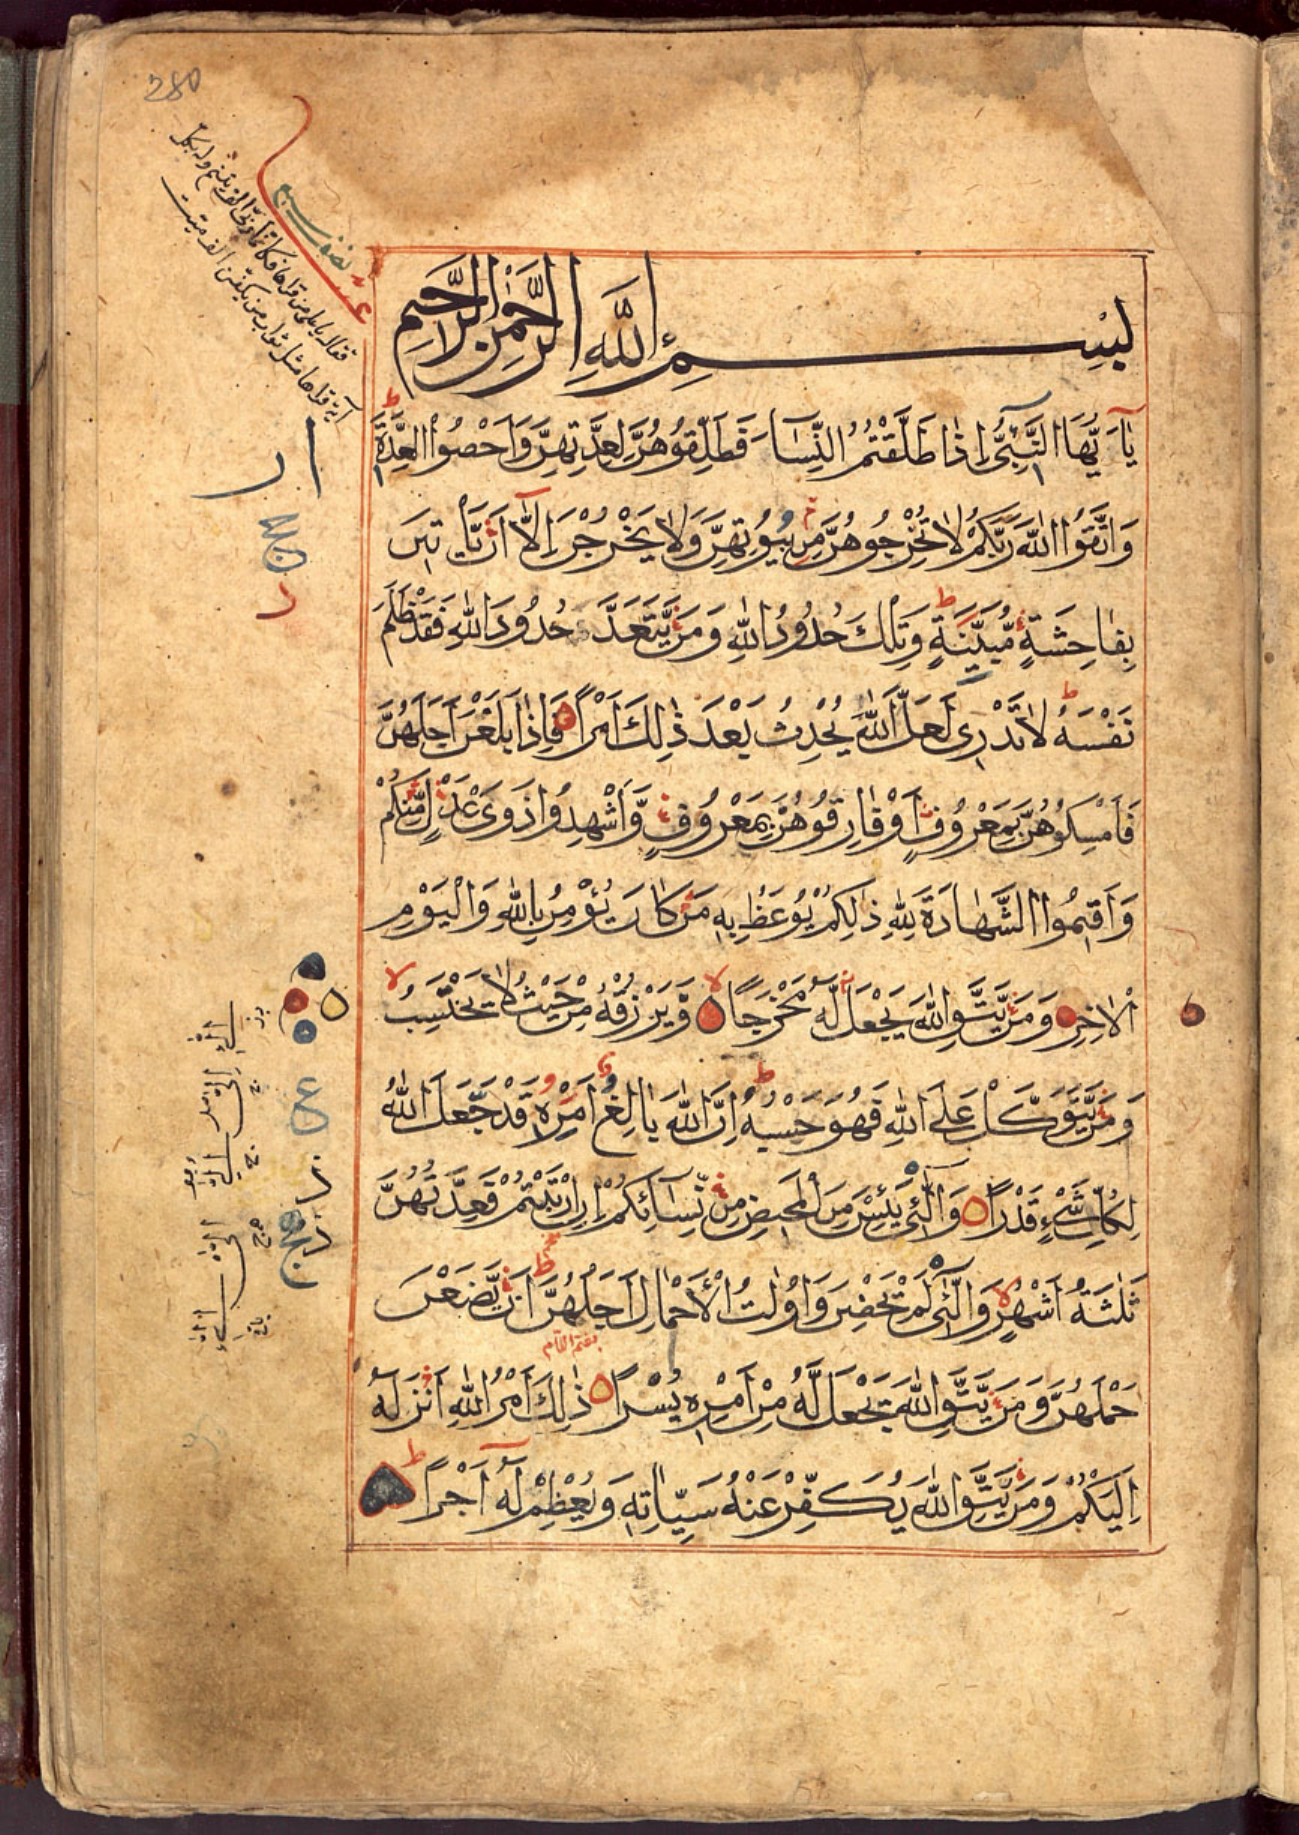 280
نصف سبع
بِسْمِ اللَّهِ الرَّحْمٰنِ الرَّحِيمِ
يٰٓاَيُّهَا النَّبِيُّ اِذَا طَلَّقْتُمُ النِّسَآءَ فَطَلِّقُوهُنَّ لِعِدَّتِهِنَّ وَاَحْصُوا الْعِدَّةَ ط
وَاتَّقُوا اللّٰهَ رَبَّكُمْ لَا تُخْرِجُوهُنَّ مِنْ بُيُوتِهِنَّ وَلَا يَخْرُجْنَ اِلَّآ اَنْ يَّاْتِيْنَ
بِفَاحِشَةٍ مُّبَيِّنَةٍ ط وَتِلْكَ حُدُودُ اللّٰهِ وَمَنْ يَّتَعَدَّ حُدُودَ اللّٰهِ فَقَدْ ظَلَمَ
نَفْسَهُ ط لَا تَدْرِي لَعَلَّ اللّٰهَ يُحْدِثُ بَعْدَ ذٰلِكَ اَمْرًا فَاِذَا بَلَغْنَ اَجَلَهُنَّ
فَاَمْسِكُوهُنَّ بِمَعْرُوفٍ اَوْ فَارِقُوهُنَّ بِمَعْرُوفٍ وَّاَشْهِدُوا ذَوَيْ عَدْلٍ مِّنْكُمْ
وَاَقِيمُوا الشَّهَادَةَ لِلّٰهِ ذٰلِكُمْ يُوعَظُ بِهٖ مَنْ كَانَ يُؤْمِنُ بِاللّٰهِ وَالْيَوْمِ
الْاٰخِرِ وَمَنْ يَّتَّقِ اللّٰهَ يَجْعَلْ لَّهٗ مَخْرَجًا لا وَّيَرْزُقْهُ مِنْ حَيْثُ لَا يَحْتَسِبُ لا
وَمَنْ يَّتَوَكَّلْ عَلَى اللّٰهِ فَهُوَ حَسْبُهُ ط اِنَّ اللّٰهَ بَالِغُ اَمْرِهٖ قَدْ جَعَلَ اللّٰهُ
لِكُلِّ شَيْءٍ قَدْرًا وَالّٰٓئِي يَئِسْنَ مِنَ الْمَحِيضِ مِنْ نِّسَآئِكُمْ اِنِ ارْتَبْتُمْ فَعِدَّتُهُنَّ
ثَلٰثَةُ اَشْهُرٍ لا وَالّٰٓئِي لَمْ يَحِضْنَ وَاُولٰتُ الْاَحْمَالِ اَجَلُهُنَّ ط اَنْ يَّضَعْنَ
حَمْلَهُنَّ وَمَنْ يَّتَّقِ اللّٰهَ يَجْعَلْ لَّهٗ مِنْ اَمْرِهٖ يُسْرًا ذٰلِكَ اَمْرُ اللّٰهِ اَنْزَلَهٗٓ
اِلَيْكُمْ وَمَنْ يَّتَّقِ اللّٰهَ يُكَفِّرْ عَنْهُ سَيِّاٰتِهٖ وَيُعْظِمْ لَهٗٓ اَجْرًا ط